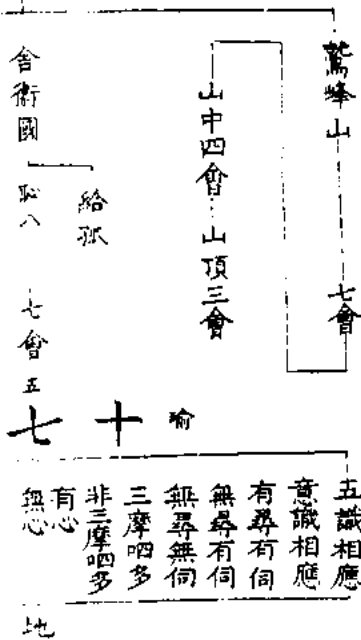 鷲峰山 七會
山中四會 山頂三會
給孤
舍衛國 七會
五
瑜
十
七
五識相應
意識相應
有尋有伺
無尋有伺
無尋無伺
三摩呬多
非三摩呬多
有心
無心
地